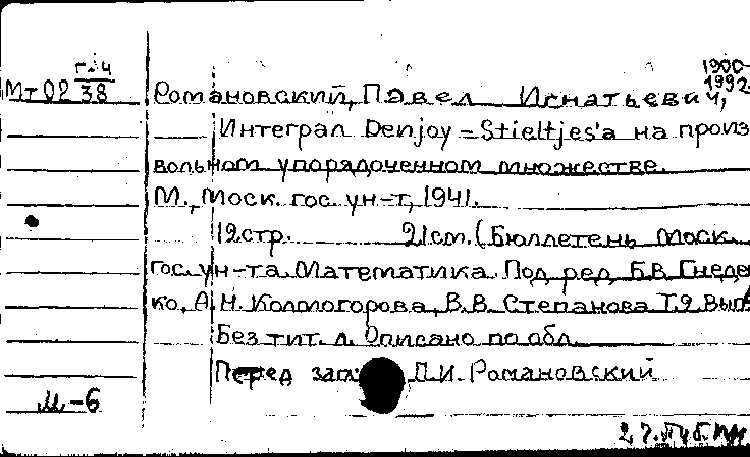 1900-
1992
Мт02 38
Романовский, Павел Игнатьевич,
Интеграл Denjoy-Stieltjes'a на произ
вольном упорядоченном множестве.
М., Моск. гос. ун-т, 1941.
12стр. 21см. (Бюллетень Моск.
гос. ун-та. Математика. Под ред. Б.В. Гнеден
ко, А.Н. Колмогорова, В.В. Степанова Т.9 Вып
Без тит. л. Описано по обл.
Перед загл: П.И. Романовский
М-6